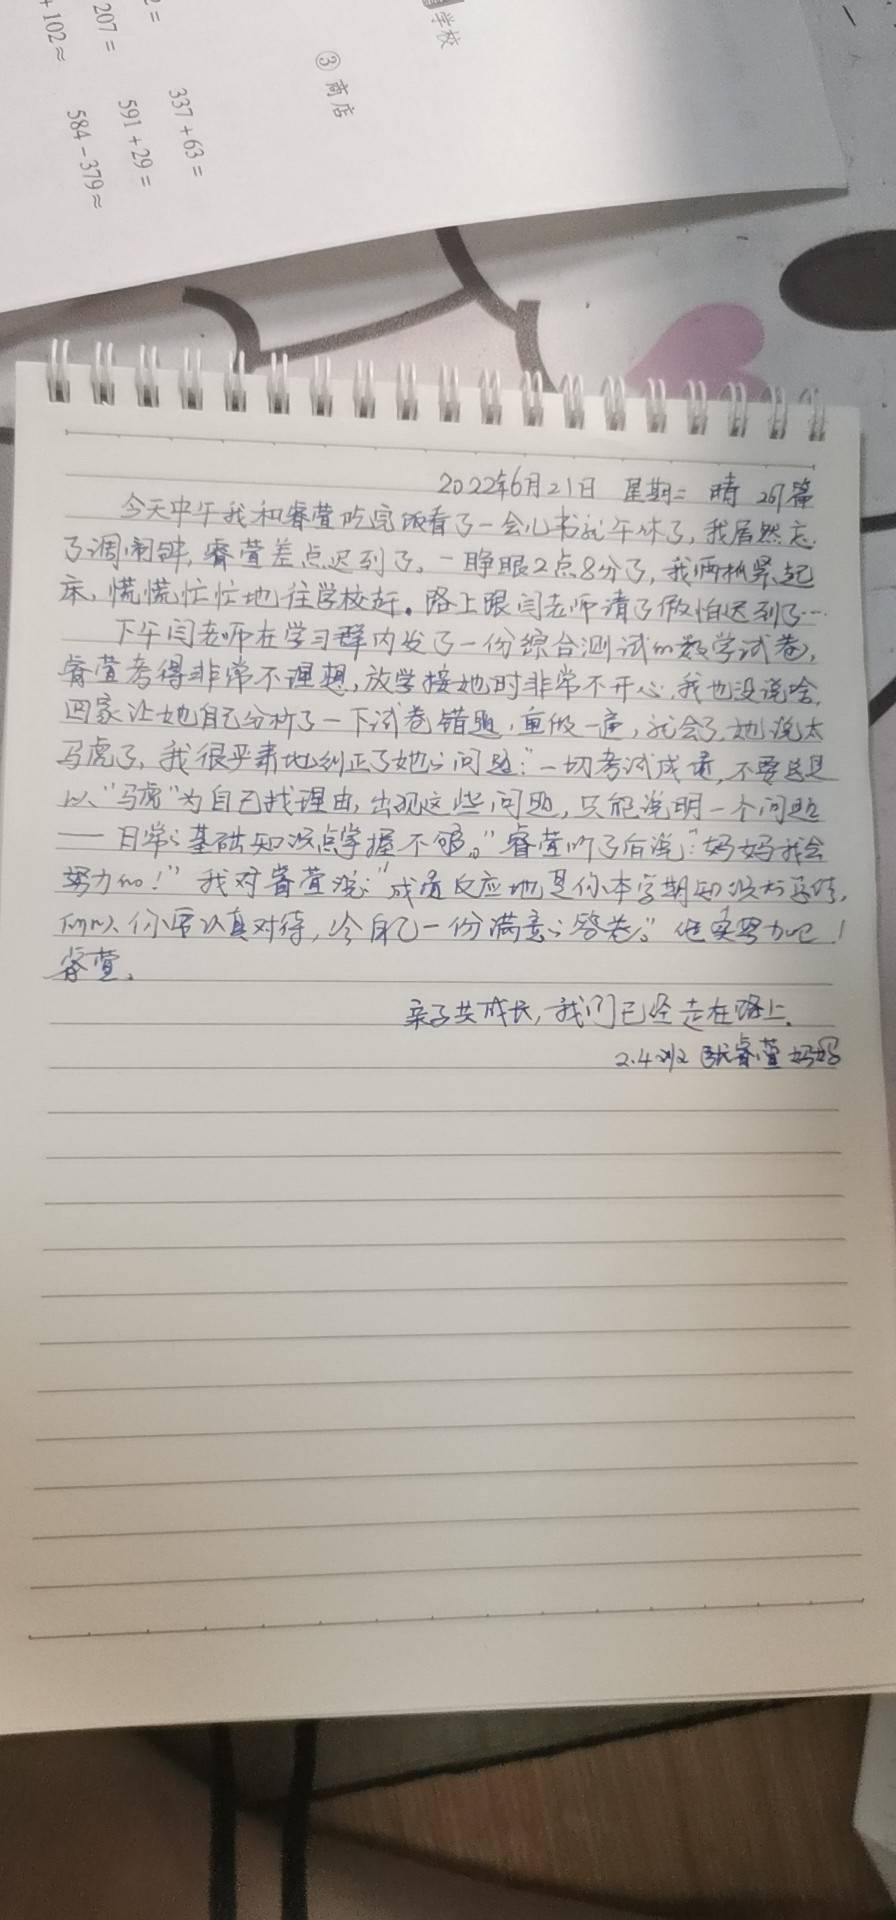 学校
③ 商店
2 =
207 =
+ 102 ≈
337 + 63 =
591 + 29 =
584 - 379 ≈
2022年6月21日 星期二 晴 261篇
今天中午我和睿萱吃完饭看了一会儿书就午休了,我居然忘
了调闹钟,睿萱差点迟到了。一睁眼2点8分了,我俩抓紧起
床,慌慌忙忙地往学校赶。路上跟闫老师请了假怕迟到了…
下午闫老师在学习群内发了一份综合测试的数学试卷,
睿萱考得非常不理想,放学接她时非常不开心,我也没说啥,
回家让她自己分析了一下试卷错题,重做一遍,就会了,她说太
马虎了,我很严肃地纠正了她的问题:"一切考试成绩,不要总是
以"马虎"为自己找理由,出现这些问题,只能说明一个问题
——日常的基础知识点掌握不够。"睿萱听了后说:"妈妈我会
努力的!"我对睿萱说:"成绩反应地是你本学期知识
所以你要认真对待,给自己一份满意的答卷。"继续努力吧!
睿萱。
亲子共成长,我们已经走在路上。
2.4班 张睿萱妈妈